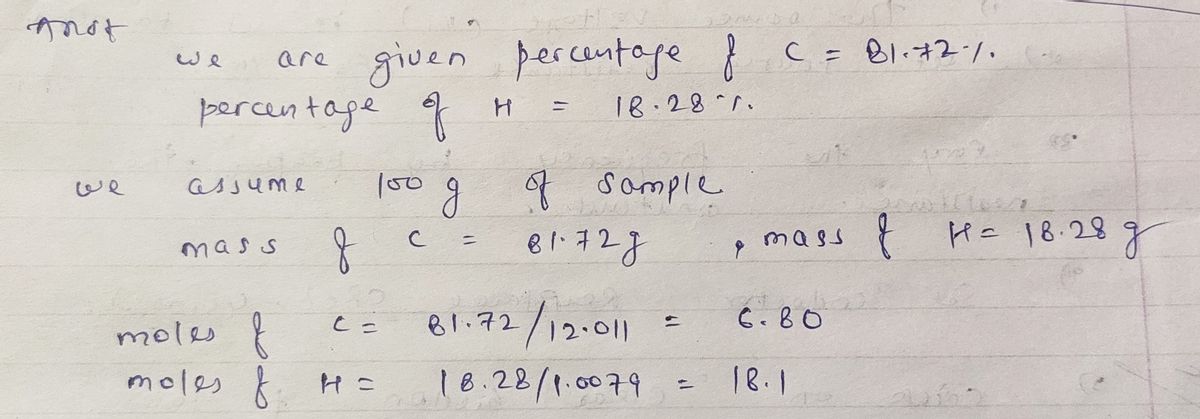 Ans
we are given percentage of C = 81.72%.
percentage of H = 18.28%.
we assume 100 g of sample
mass of C = 81.72g , mass of H = 18.28 g
moles of C = 81.72/12.011 = 6.80
moles of H = 18.28/1.0079 = 18.1